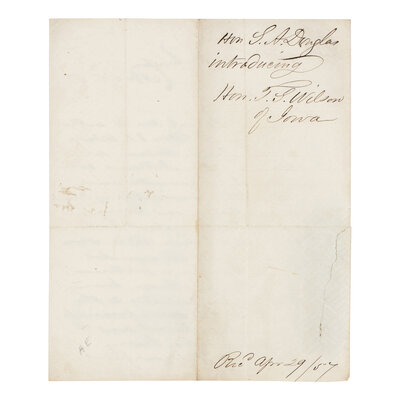 Hon S. A. Douglas
introducing
Hon. T. S. Wilson
of Iowa
Rec'd Apr 29/57